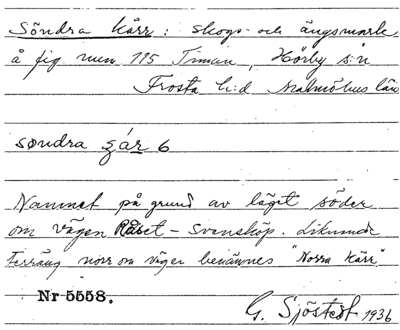 Söndra kärr: skogs- och ängsmark
å fig num 115 Timan, Hörby s:n
Frosta h:d Malmöhus län
söndra 6
Namnet på grund av läget söder
om vägen Råset - Svensköp. Liknande
terräng norr om vägen benämnes "Norra kärr"
Nr 5558.
G. Sjöstedt 1936